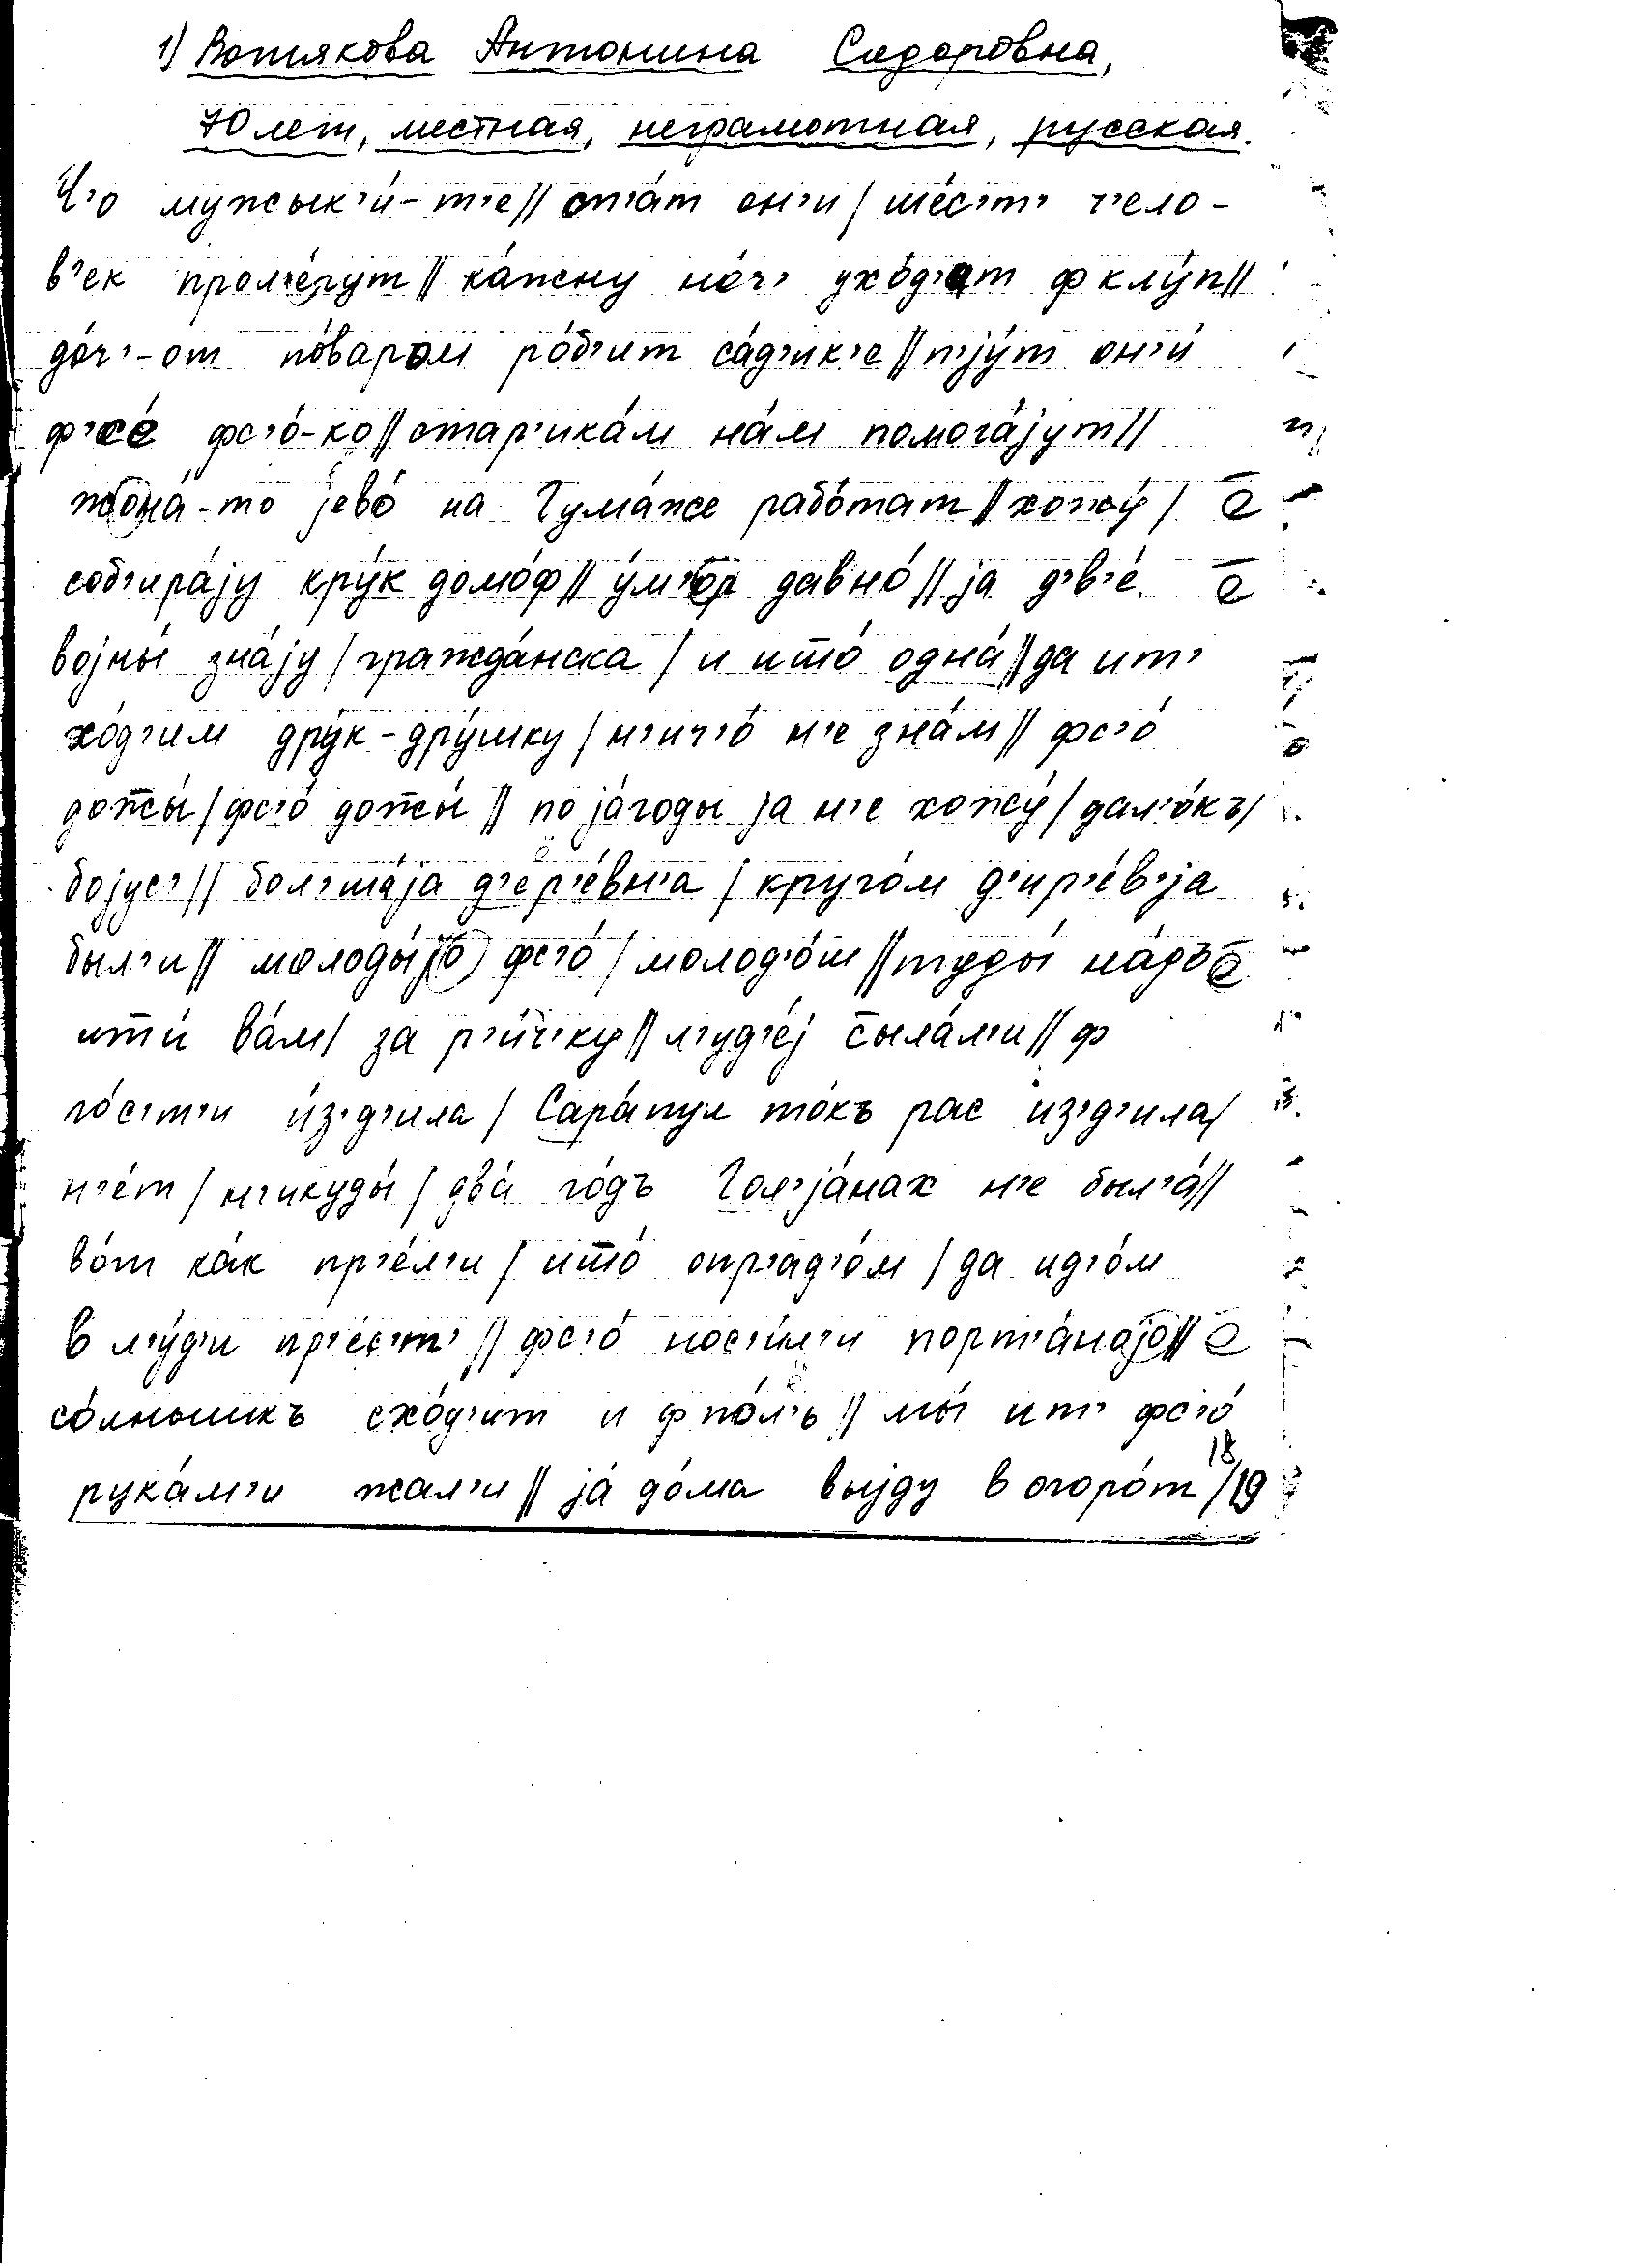 1) Вотякова Антонина Сидоровна,
70 лет, местная, неграмотная, русская.
Ч'о мужык'и́-т'е // сп'а́т он'и / ше́с'т' ч'ело-
в'ек прол'е́гут // ка́жну но́ч' ухо́д'ат ф клу́п //
до́ч'-от по́варом ро́б'ит са́д'ик'е // п'jу́т он'и́
ф'се́ фс'о́-ко // стар'ика́м на́м помога́jут //
жона́-то jево́ на Гума́же рабо́тат // хожу́ / е
соб'ира́jу кру́к домо́ф // у́м'ор давно́ // jа д'в'е́ е
воjны́ зна́jу / гражда́нска / и ишо́ одна́ // да ит'
хо́д'им дру́к-дру́шку / н'ич'о́ н'е зна́м // фс'о́
дожы́ / фс'о́ дожы́ // по jа́годы jа н'е хожу́ / дал'о́къ /
боjус' // бол'ша́jа д'ер'е́вн'а / круго́м д'ир'е́в'jа
был'и // молоды́jо фс'о́ / молод'о́ш // туды́ на́дъ е
ити́ ва́м / за р'и́ч'ку // л'уд'е́j сыла́л'и // ф
го́с'т'и и́з'д'ила / Сара́пул то́къ рас из'д'ила /
н'е́т / н'икуды́ / два́ го́дъ Гол'jа́нах н'е был'а́ //
во́т ка́к пр'е́л'и / ишо́ опр'ад'о́м / да ид'о́м
в л'у́д'и пр'е́с'т' // фс'о́ нос'и́л'и порт'а́ноjо // е
со́лнышкъ схо́д'ит и ф по́л'ь // мы́ ит' фс'о́
рука́м'и жал'и // jа́ до́ма выjду в огоро́т / 18/19